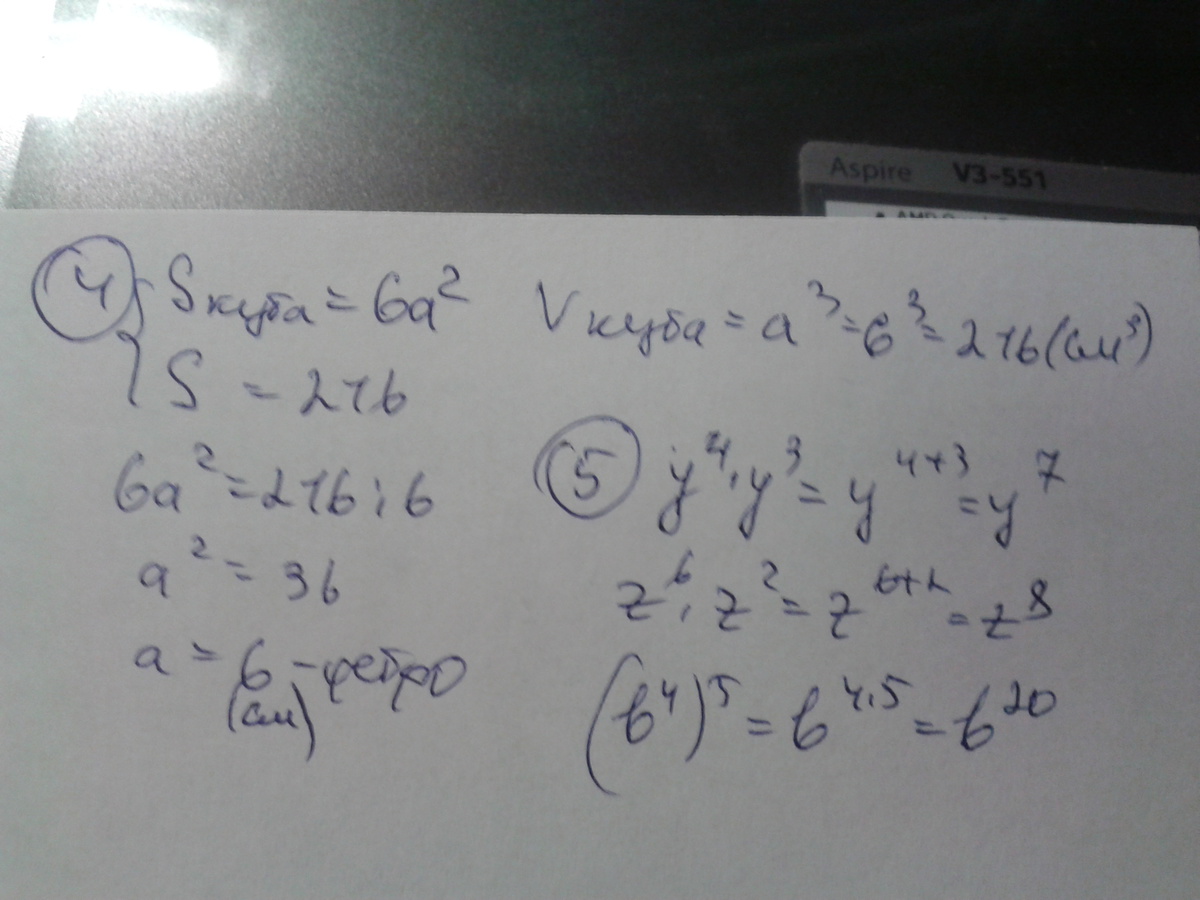 Aspire V3-551
④ { S куба = 6a²
S = 216
6a² = 216 : 6
a² = 36
a = 6 - ребро
(см)
V куба = a³ = 6³ = 216 (см³)
⑤ y⁴ · y³ = y⁴⁺³ = y⁷
z⁶ · z² = z⁶⁺² = z⁸
(b⁴)⁵ = b⁴·⁵ = b²⁰